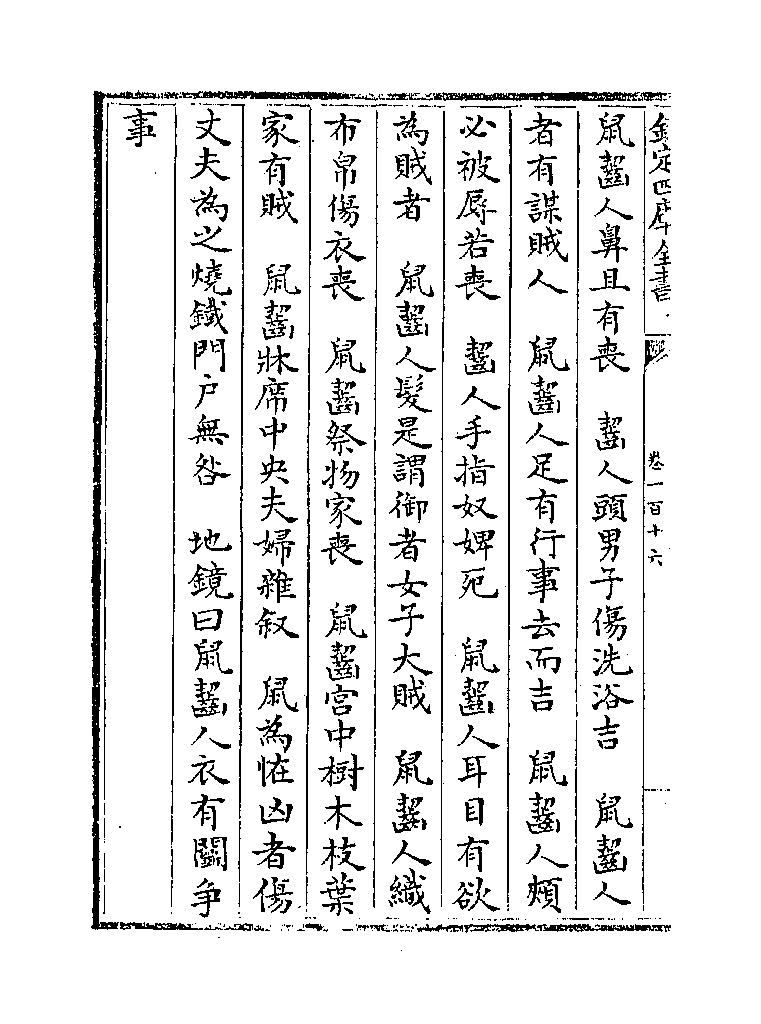 欽定四庫全書
卷一百十六
鼠齧人鼻且有喪　齧人頭男子傷洗浴吉　鼠齧人
者有謀賊人　鼠齧人足有行事去而吉　鼠齧人頰
必被辱若喪　齧人手指奴婢死　鼠齧人耳目有欲
為賊者　鼠齧人髮是謂御者女子大賊　鼠齧人織
布帛傷衣喪　鼠齧祭物家喪　鼠齧宫中樹木枝葉
家有賊　鼠齧牀席中央夫婦雜叙　鼠為怪凶者傷
丈夫為之燒鐵門户無咎　地鏡曰鼠齧人衣有鬭争
事